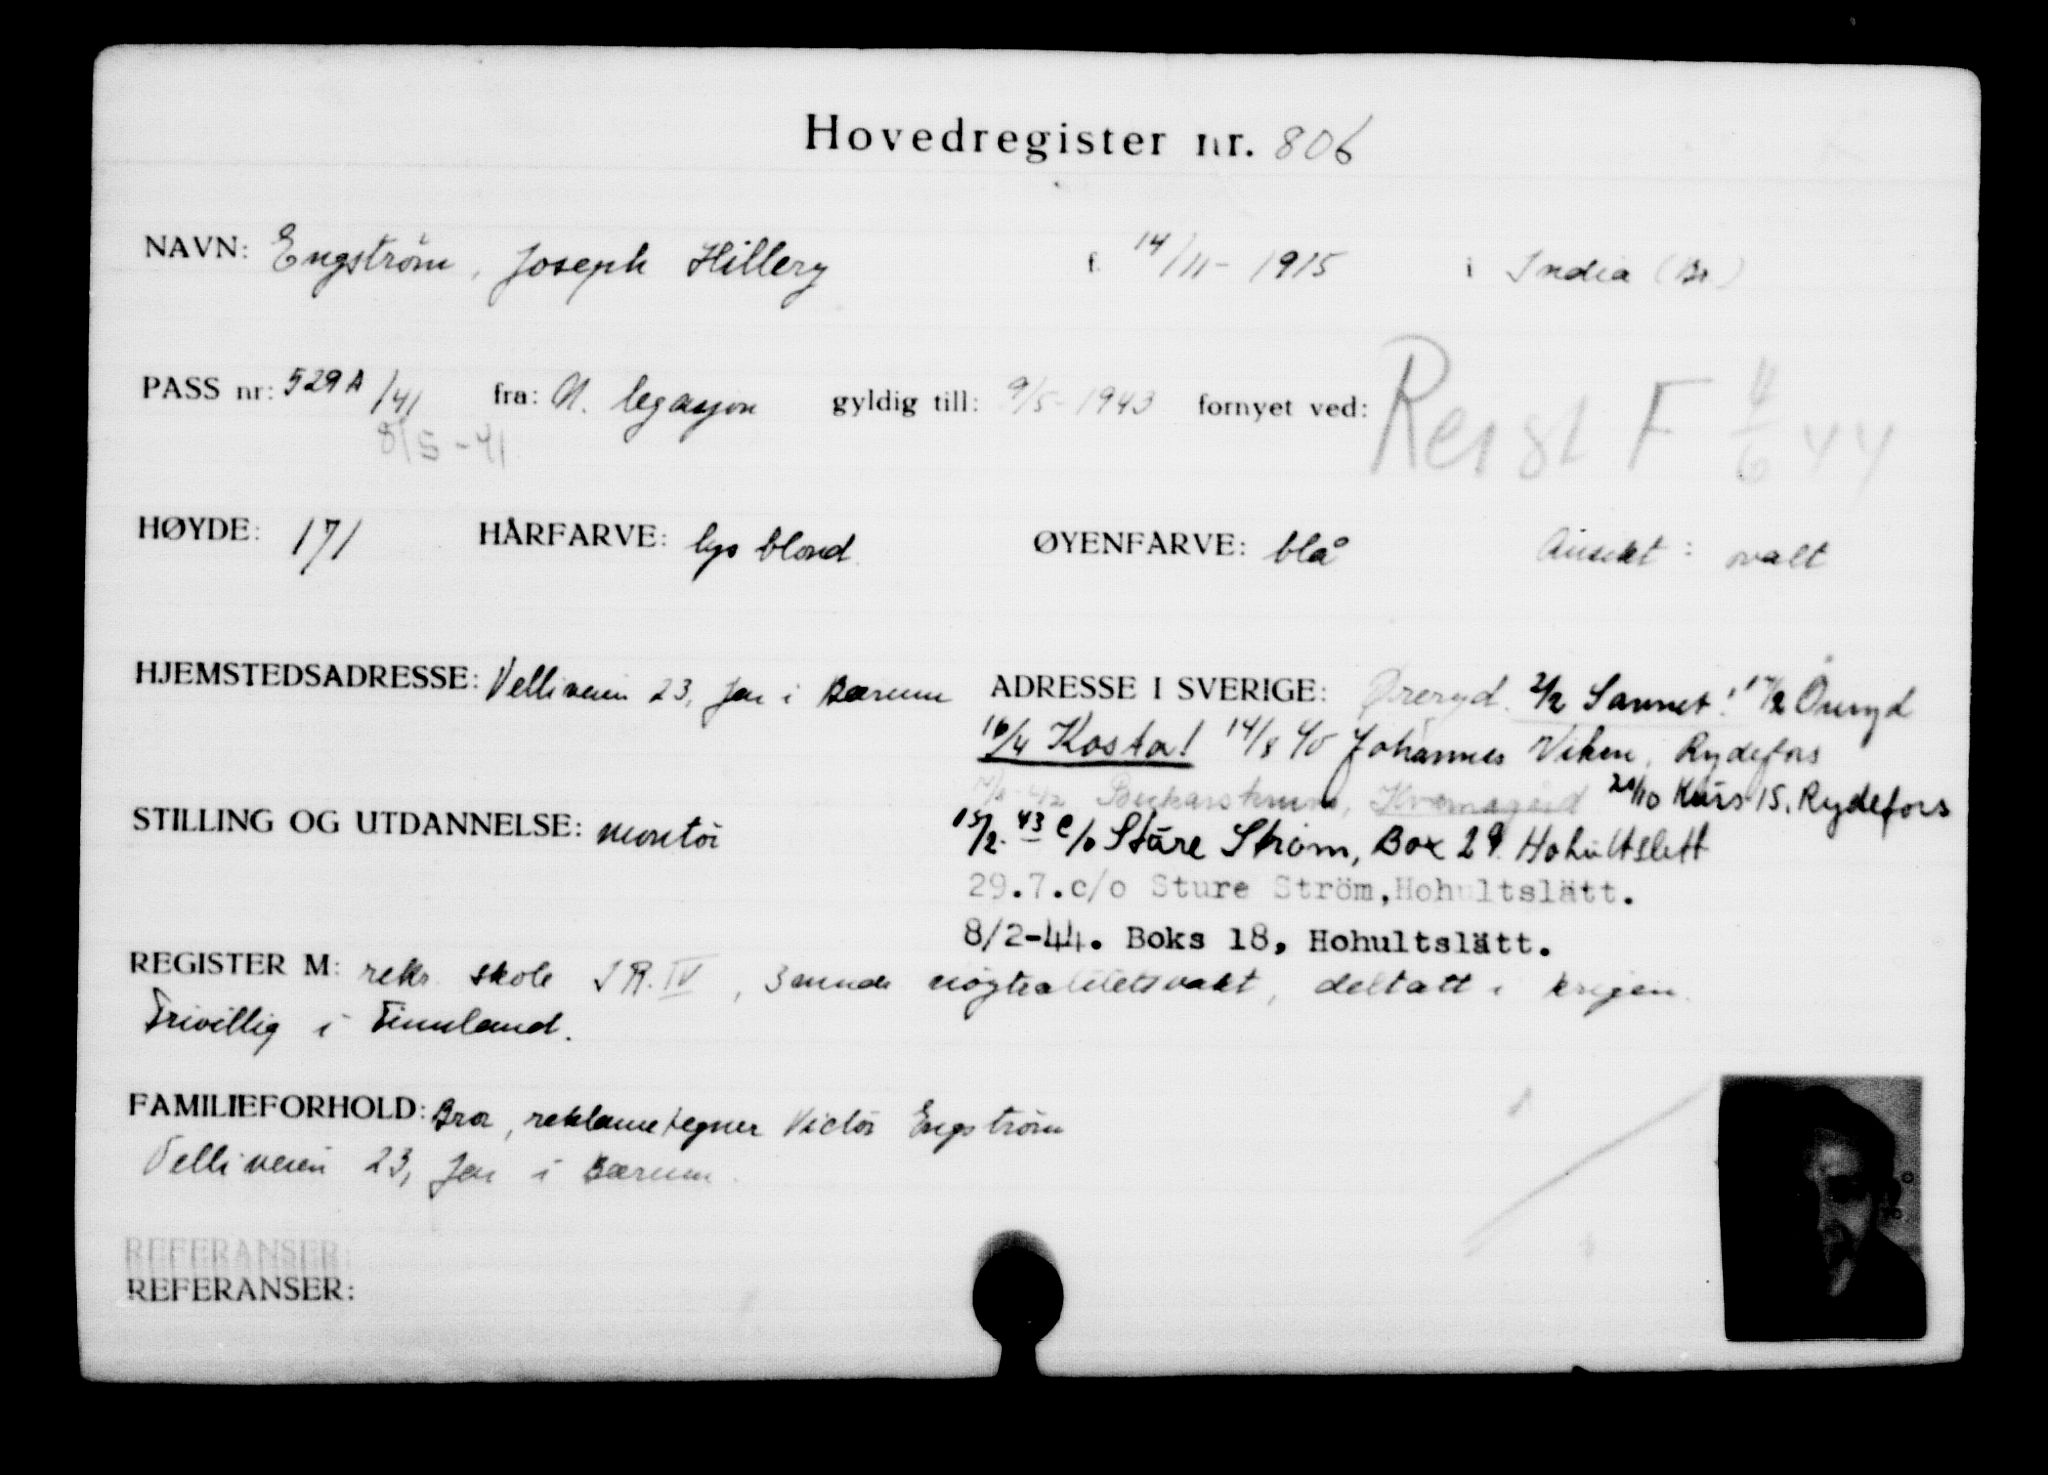 Hovedregister nr. 806
NAVN: Engström, Joseph Hillery f. 14/11-1915 i India (Br.)
PASS nr: 529A/41 fra: N. legasjon gyldig till: 9/5-1943 fornyet ved: Reist F 4/6 44
8/5-41
HØYDE: 171 HÅRFARVE: lys blond. ØYENFARVE: blå Ansikt: ovalt
HJEMSTEDSADRESSE: Velliveien 23, Jar i Bærum
ADRESSE I SVERIGE: Øreryd. 2/2 Sannet! 17/2 Öreryd
16/4 Kosta! 14/8 40 Johannes Viken, Rydefors
20/10 Kurs 15. Rydefors
STILLING OG UTDANNELSE: montör
15/2. 43 c/o Sture Strøm, Box 29. Hohultslett
29.7.c/o Sture Ström, Hohultslätt.
8/2-44. Boks 18, Hohultslätt.
REGISTER M: rekr. skole I R. IV, 3 mndr nøytralitetsvakt, deltatt i krigen.
Frivillig i Finnland.
FAMILIEFORHOLD: Bror, reklametegner Victor Engstrøm
Velliveien 23, Jar i Bærum.
REFERANSER:
REFERANSER: